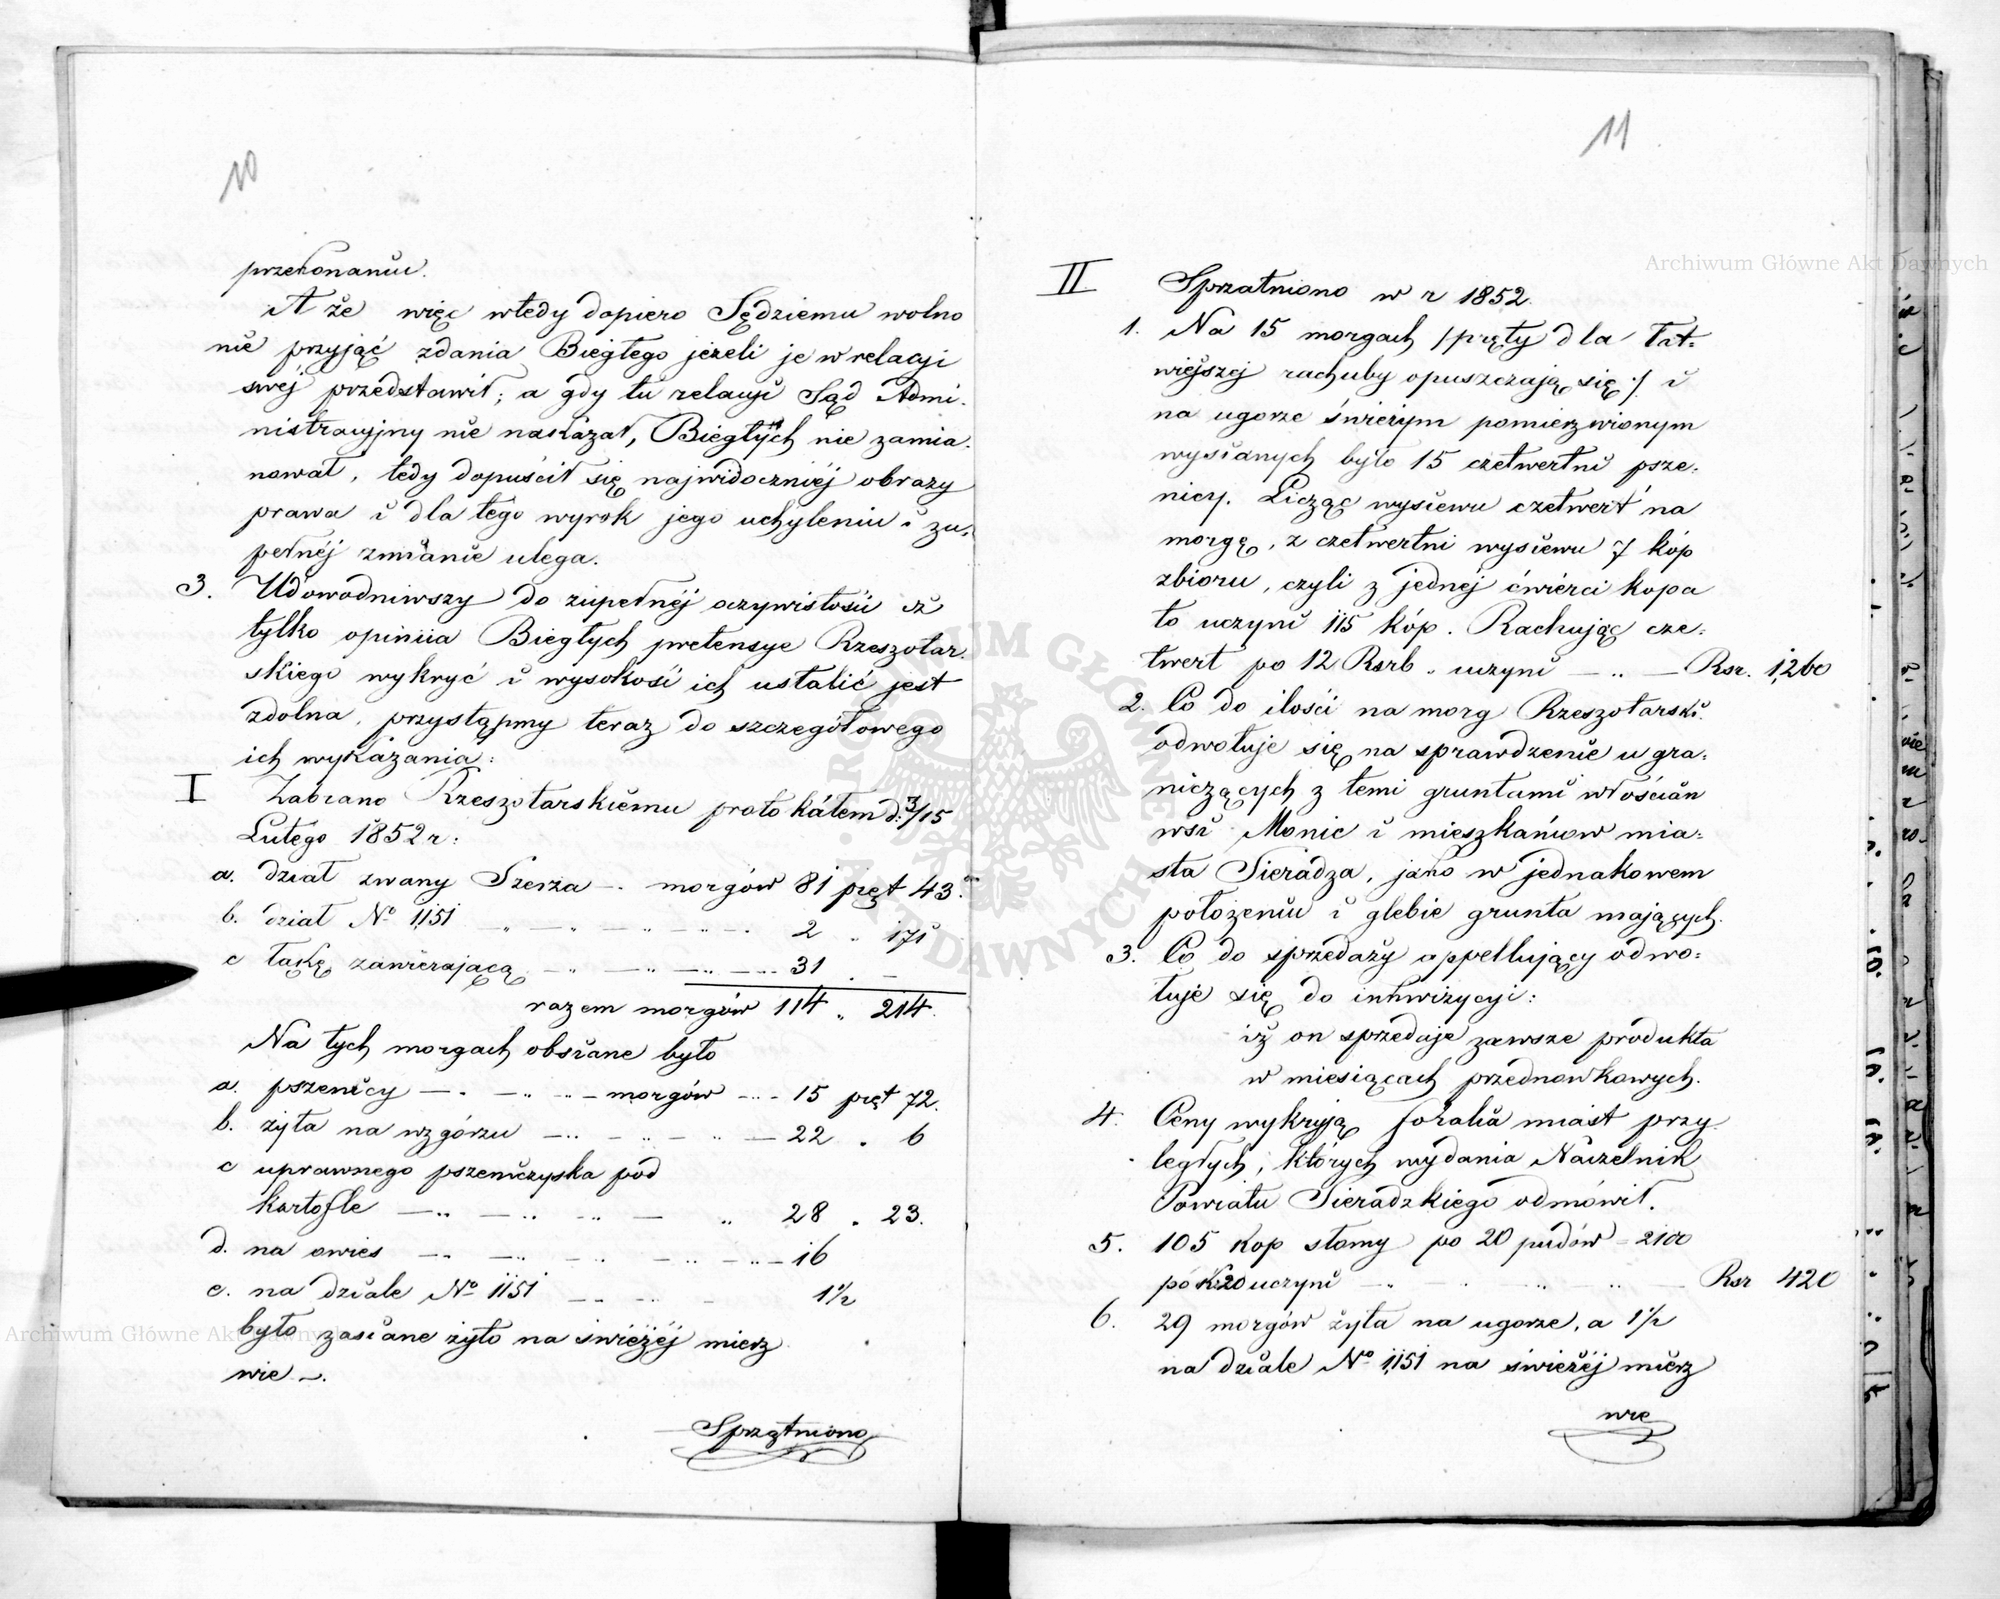 10
przekonaniu.
A że więc wtedy dopiero Sędziemu wolno
nie przyjąć zdania Biegłego jeżeli je w relacyi
swej przedstawił; a gdy tu relacyi Sąd Admi-
nistracyjny nie nakazał, Biegłych nie zamia-
nował, tedy dopuścił się najwidoczniéj obrazy
prawa i dla tego wyrok jego uchyleniu i zu-
pełnéj zmianie ulega.
3. Udowodniwszy do zupełnéj oczywistości iż
tylko opiniia Biegłych pretensye Rzeszotar-
skiego wykryć i wysokość ich ustalić jest
zdolna, przystąpmy teraz do szczegółowego
ich wykazania:
I Zabrano Rzeszotarskiemu protokółem d. 3/15
Lutego 1852 r:
a. dział zwany Szerza — morgów 81 pręt 43.
b. dział No 1151 2 " 171
c łąkę zawierającą — 31 . —
razem morgów 114 " 214.
Na tych morgach obsiane było
a. pszenicy — morgów — 15 pręt 72.
b. żyta na wzgórzu — 22 " 6
c uprawnego pszeniczyska pod
kartofle — 28 " 23.
d. na owies — 16
e. na dziale No 1151 — 1 1/2
było zasiane żyto na świeżéj mierz
wie —.
Sprzątniono
11
II Sprzątniono w r 1852.
1. Na 15 morgach /pręty dla łat-
wiejszej rachuby opuszczają się:/ i
na ugorze świeżym pomierzwionym
wysianych było 15 czetwertni psze-
nicy. Licząc wysiewu czetwert na
morgę, z czetwertni wysiewu 7 kóp
zbioru, czyli z jednéj ćwierci kopa
to uczyni 115 kóp. Rachując cze-
twert po 12 Rsrb. uczyni — Rsr. 1,260
2. Co do ilości na morg Rzeszotarski
odwołuje się na sprawdzenie u gra-
niczących z temi gruntami włościan
wsi Monic i mieszkańców mia-
sta Sieradza, jako w jednakowem
położeniu i glebie grunta mających.
3. Co do sprzedaży appellujący odwo-
łuje się do inkwizycyi:
iż on sprzedaje zawsze produkta
w miesiącach przednowkowych.
4. Ceny wykryją foralia miast przy
ległych, których wydania Naczelnik
Powiatu Sieradzkiego odmówił.
5. 105 kop słomy po 20 pudów = 2100
po K. 20 uczyni — Rsr 420
6. 29 morgów żyta na ugorze, a 1 1/2
na dziale No 1151 na świeżéj mierz
wie
Archiwum Główne Akt Dawnych
Archiwum Główne Akt Dawnych
ARCHIWUM GŁÓWNE AKT DAWNYCH